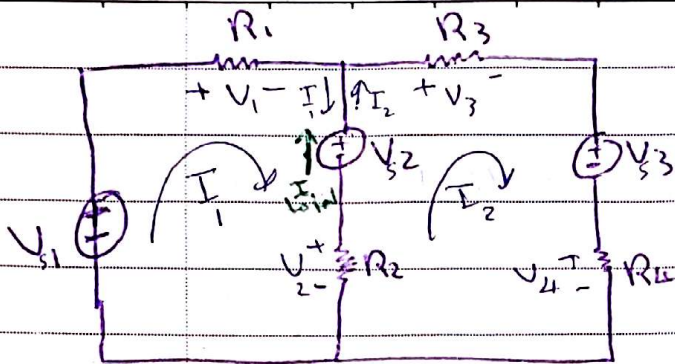 R1 R3
+ V1 - I1↓ ↑I2 + V3 -
+ - VS2 + - VS3
I1 I I2
WIN
VS1 V2 + - R2 V4 + - R4